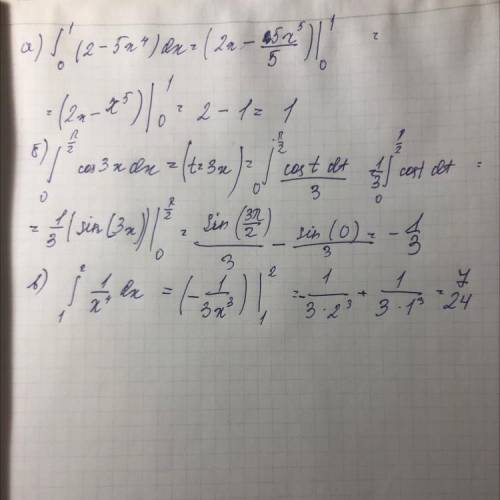 а) ∫₀¹ (2 - 5x⁴) dx = (2x - 5x⁵/5) |₀¹ =
= (2x - x⁵) |₀¹ = 2 - 1 = 1
б) ∫₀^(π/2) cos 3x dx = (t = 3x) = ∫₀^(π/2) cos t dt / 3 = 1/3 ∫₀^(π/2) cos t dt =
= 1/3 (sin(3x)) |₀^(π/2) = sin(3π/2)/3 - sin(0)/3 = - 1/3
в) ∫₁² 1/x⁴ dx = (- 1/3x³) |₁² = - 1/3·2³ + 1/3·1³ = 7/24